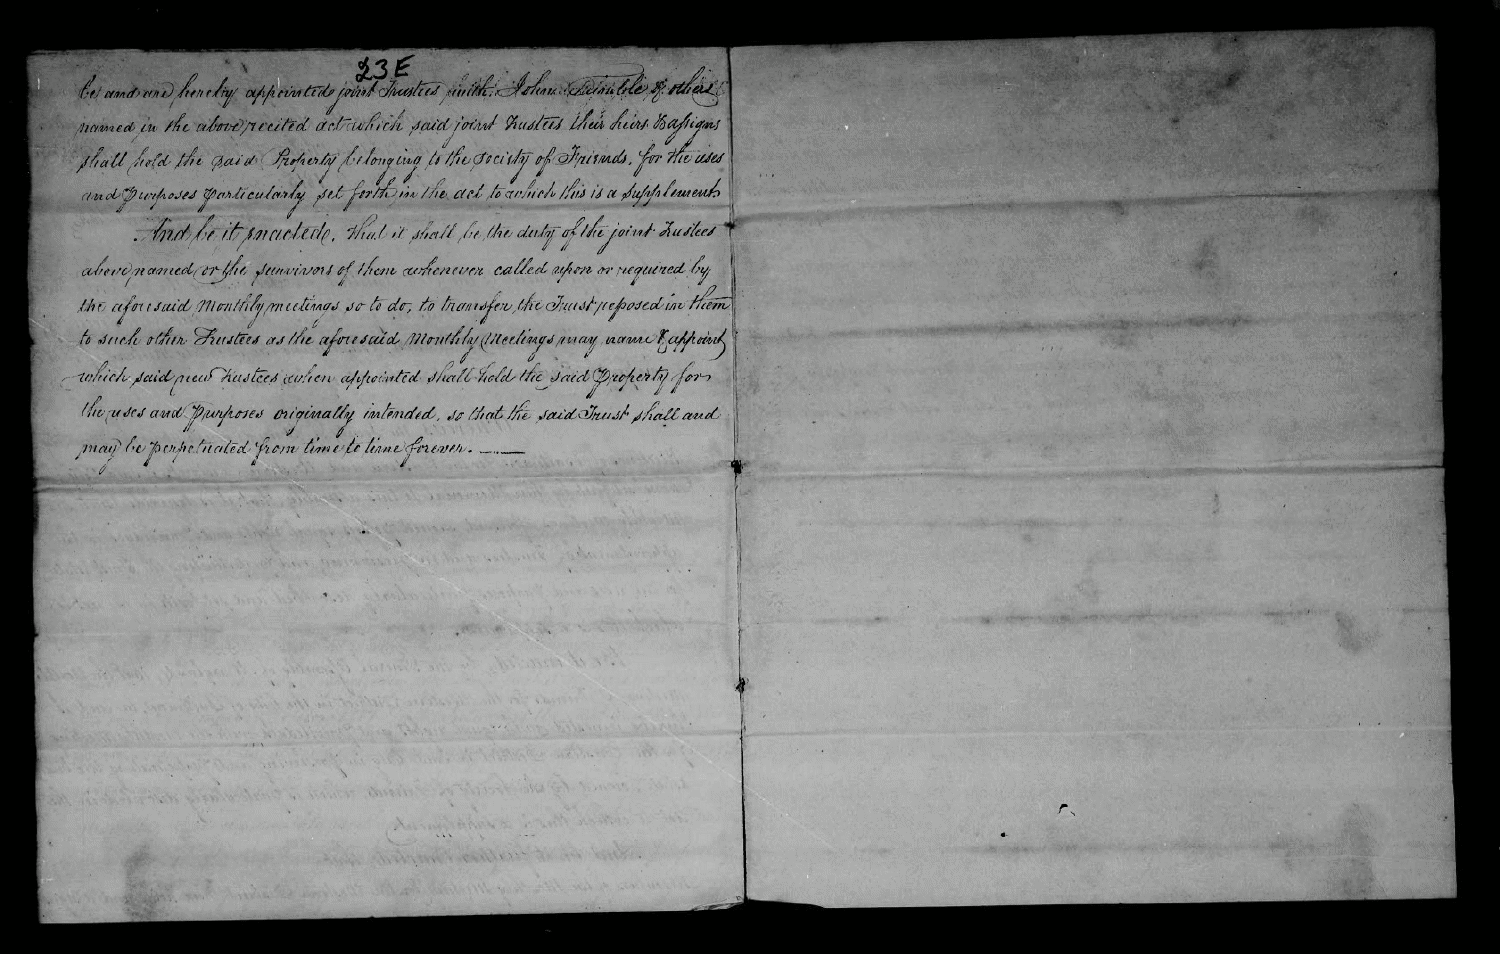 23E
be and are hereby appointed joint Trustees with John & others
named in the above recited act which said joint Trustees their heirs & assigns
shall hold the said Property belonging to the society of Friends, for the uses
and Purposes particularly set forth in the act to which this is a supplement
And be it enacted, That it shall be the duty of the joint Trustees
above named or the survivors of them whenever called upon or required by
the aforesaid Monthly meetings so to do, to transfer the Trust reposed in them
to such other Trustees as the aforesaid Monthly Meetings may name & appoint
which said new Trustees when appointed shall hold the said Property for
the uses and Purposes originally intended, so that the said Trust shall and
may be perpetuated from time to time forever.